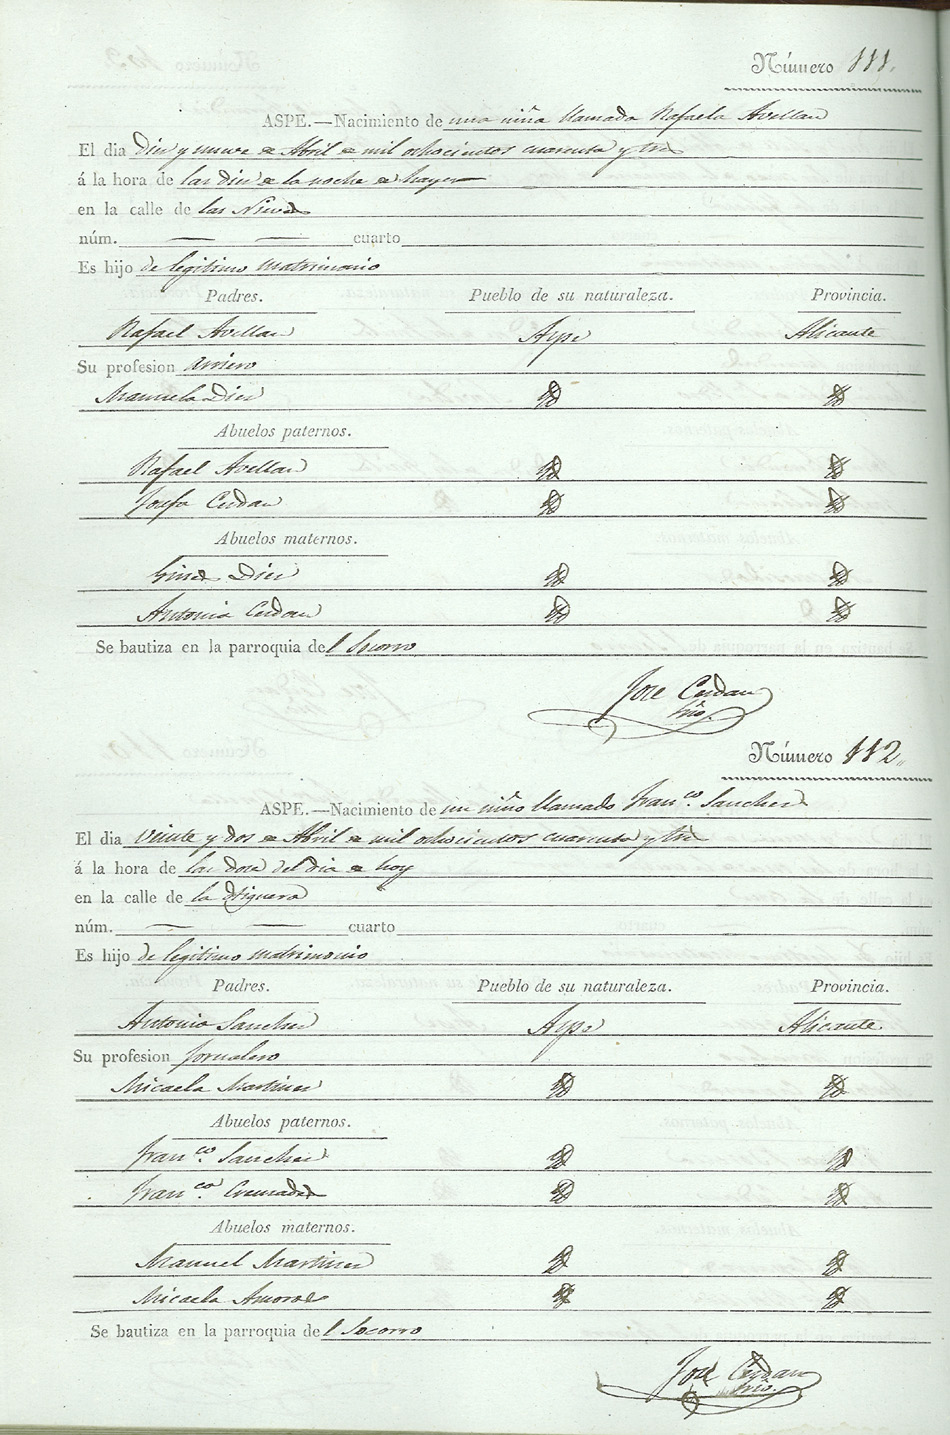 Número 111.
ASPE.—Nacimiento de una niña llamada Rafaela Avellan
El dia diez y nueve de Abril de mil ochocientos cuarenta y tres
á la hora de las diez de la noche de hayer
en la calle de las Nieves
núm. — — cuarto
Es hijo de legitimo matrimonio
Padres. Pueblo de su naturaleza. Provincia.
Rafael Avellan Aspe Alicante
Su profesion arriero
Manuela Diez
Abuelos paternos.
Rafael Avellan
Josefa Cerdan
Abuelos maternos.
Gines Diez
Antonia Cerdan
Se bautiza en la parroquia del Socorro
Jose Cerdan
Srio.
Número 112.
ASPE.—Nacimiento de un niño llamado Franco. Sanchez
El dia veinte y dos de Abril de mil ochocientos cuarenta y tres
á la hora de las doce del dia de hoy
en la calle de la Higuera
núm. — — cuarto
Es hijo de legitimo matrimonio
Padres. Pueblo de su naturaleza. Provincia.
Antonio Sanchez Aspe Alicante.
Su profesion Jornalero
Micaela Martinez
Abuelos paternos.
Franco. Sanchez
Franca. Cremades
Abuelos maternos.
Manuel Martinez
Micaela Amoros
Se bautiza en la parroquia del Socorro
José Cerdan
Srio.